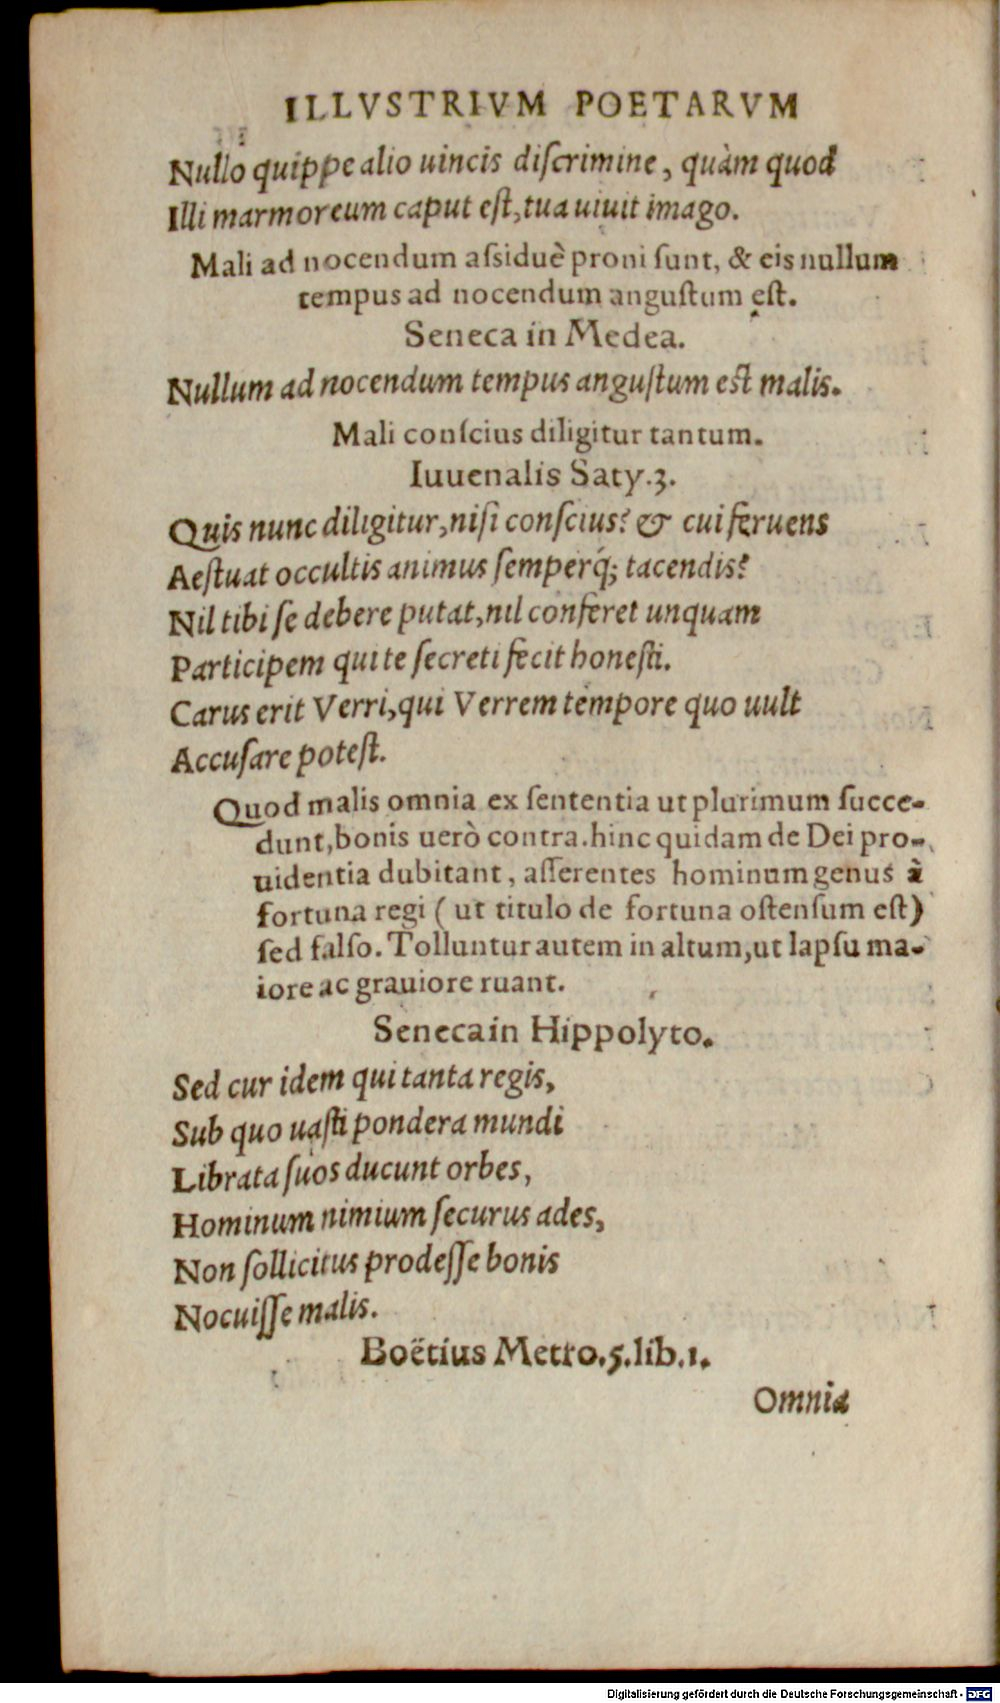 ILLVSTRIVM POETARVM
Nullo quippe alio uincis diſcrimine, quàm quod
Illi marmoreum caput eſt, tua uiuit imago.
Mali ad nocendum aſsiduè proni ſunt, & eis nullum
tempus ad nocendum anguſtum eſt.
Seneca in Medea.
Nullum ad nocendum tempus anguſtum eſt malis.
Mali conſcius diligitur tantum.
Iuuenalis Saty.3.
Quis nunc diligitur, niſi conſcius? & cui feruens
Aeſtuat occultis animus ſemperq́; tacendis?
Nil tibi ſe debere putat, nil conferet unquam
Participem qui te ſecreti fecit honeſti.
Carus erit Verri, qui Verrem tempore quo uult
Accuſare poteſt.
Quod malis omnia ex ſententia ut plurimum ſucce-
dunt, bonis uerò contra. hinc quidam de Dei pro-
uidentia dubitant, aſſerentes hominum genus à
fortuna regi ( ut titulo de fortuna oſtenſum eſt)
ſed falſo. Tolluntur autem in altum, ut lapſu ma-
iore ac grauiore ruant.
Seneca in Hippolyto.
Sed cur idem qui tanta regis,
Sub quo uaſti pondera mundi
Librata ſuos ducunt orbes,
Hominum nimium ſecurus ades,
Non ſollicitus prodeſſe bonis
Nocuiſſe malis.
Boëtius Metro.5.lib.1.
Omnia
Digitalisierung gefördert durch die Deutsche Forschungsgemeinschaft - DFG